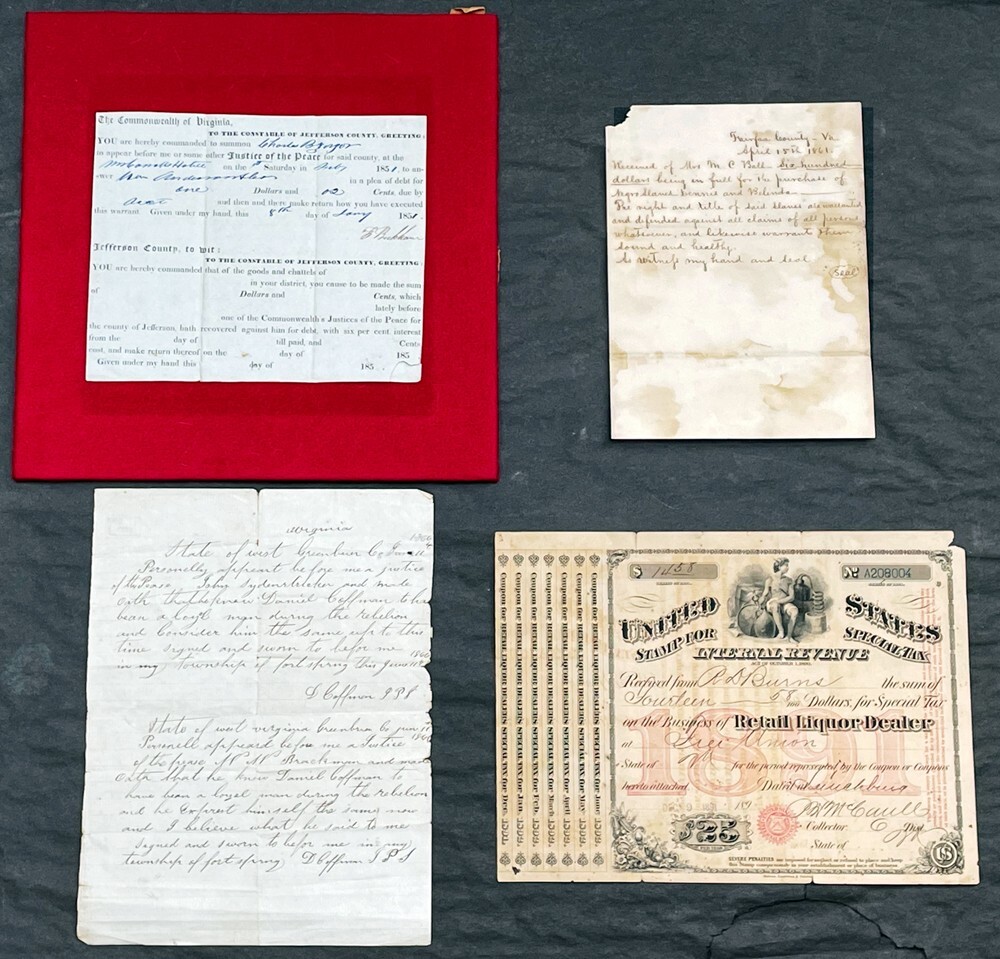 The Commonwealth of Virginia,
TO THE CONSTABLE OF JEFFERSON COUNTY, GREETING:
YOU are hereby commanded to summon Charles B
to appear before me or some other Justice of the Peace for said county, at the
on the Saturday in 1851, to an-
swer
in a plea of debt for
one Dollars and 02 Cents, due by
acct and then and there make return how you have executed
this warrant Given under my hand, this 8th day of Jany 1851.
Jefferson County, to wit:
TO THE CONSTABLE OF JEFFERSON COUNTY, GREETING:
YOU are hereby commanded that of the goods and chattels of
in your district, you cause to be made the sum
of Dollars and Cents, which
lately before
one of the Commonwealth's Justices of the Peace for
the county of Jefferson, hath recovered against him for debt, with six per cent. interest
from the day of till paid, and Cents
cost, and make return thereof on the day of 185
Given under my hand this day of 185
Fairfax County - Va
April 15th 1861.
Received of Mrs M. C Ball Six hundred
dollars being in full for the purchase of
Negro Slaves and
The right and title of said slaves
and defended against all claims of all persons
whatsoever, and likewise warrant them
sound and healthy.
As witness my hand and seal
Seal
virginia
State of west Greenbrier Co June 11
Personelly appeart before me a justice
of the Pease John Sydenstricker and made
oath that he knew Daniel Coffman to ha
bean a loyel man during the rebelion
and consider him the same up to this
time signed and sworn to before me
in my township of fort spring this June 11th
D Coffman J P S
State of west virginia Greenbrier Co June
Personell appeard before me a Justice
of the pease Brackman and made
oath that he know Daniel Coffman to
have bean a loyel man during the rebelion
and he express himself the same now
and I believe what he said to me
signed and sworn to before me in my
township of fort spring D Coffman J P S
Coupon for RETAIL LIQUOR DEALERS SPECIAL TAX for Dec. 1891.
Coupon for RETAIL LIQUOR DEALERS SPECIAL TAX for Jan. 1891.
Coupon for RETAIL LIQUOR DEALERS SPECIAL TAX for Feb. 1891.
Coupon for RETAIL LIQUOR DEALERS SPECIAL TAX for March 1891.
Coupon for RETAIL LIQUOR DEALERS SPECIAL TAX for April 1891.
Coupon for RETAIL LIQUOR DEALERS SPECIAL TAX for May 1891.
Coupon for RETAIL LIQUOR DEALERS SPECIAL TAX for June 1891.
$ 1458
No. A208004
UNITED STATES
STAMP FOR SPECIAL TAX
INTERNAL REVENUE
ACT OF OCTOBER 1, 1890.
Received from P. D. Burns the sum of
Fourteen 58/100 Dollars, for Special Tax
on the Business of Retail Liquor Dealer
at Union
State of Va for the period represented by the Coupon or Coupons
hereto attached. Dated at Lynchburg
1891
P. H. McCaull
Collector 6 Dist.
State of
$25
PER YEAR
US
SEVERE PENALTIES are imposed for neglect or refusal to place and keep
this Stamp conspicuously in your establishment or place of business.